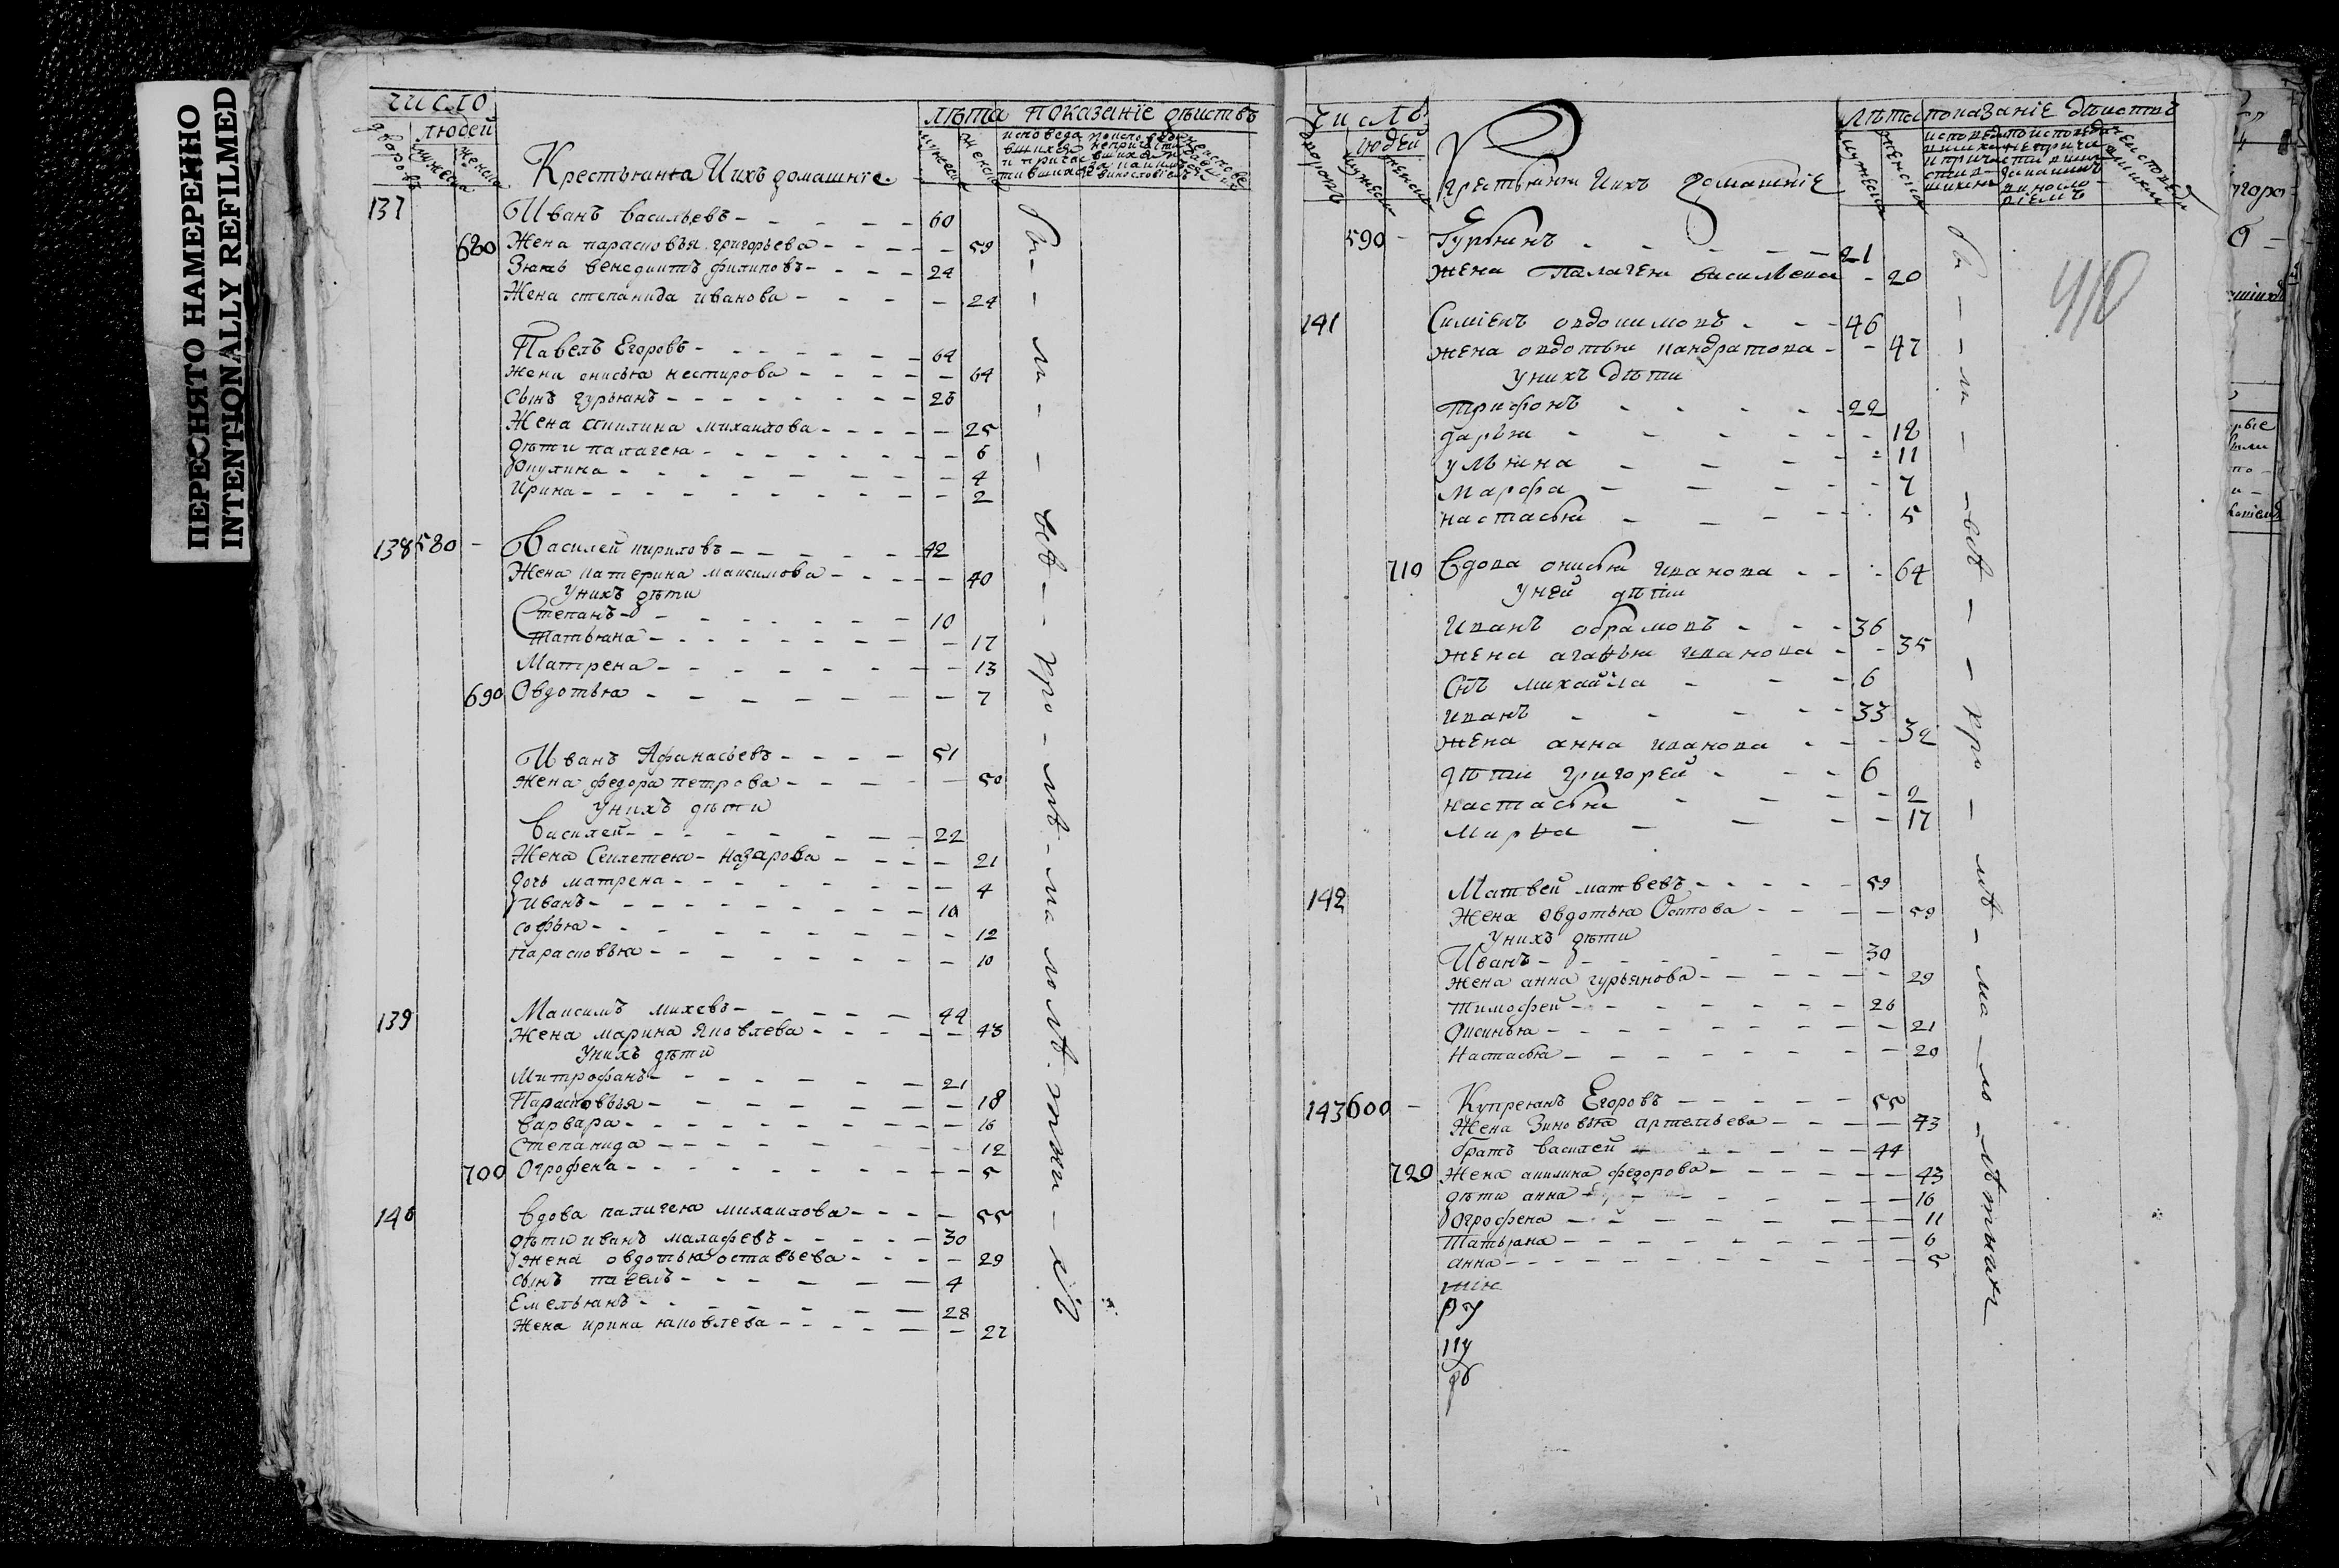 ПЕРЕСНЯТО НАМЕРЕННО
INTENTIONALLY REFILMED
число
дворовъ
людей
мужеска
женска
Крестьяня Иихъ домашнїе
лѣта
мужеска
женска
показанїе дѣиствъ
137 Иванъ васильевъ 60
680 Жена парасковья григорьева 59
Зять венедиктъ филиповъ 24
Жена степанида иванова 24
Павелъ Егоровъ 64
жена анисья нестирова 64
сынъ гурьянъ 26
Жена акилина михаилова 25
дѣти палагея 6
окулина 4
Ирина 2
138 580 Василей кириловъ 42
Жена катерина максимова 40
Унихъ дѣти
Степанъ 10
Татьяна 17
Матрена 13
690 Овдотья 7
Иванъ Афанасьевъ 51
жена федора петрова 50
Унихъ дѣти
Василей 22
Жена Секлетея назарова 21
дочь матрена 4
Иванъ 10
софья 12
парасковья 10
139 Максимъ михевъ 44
Жена марина яковлева 43
Унихъ дѣти
Митрофанъ 21
Парасковья 18
варвара 16
Степанида 12
700 Огрофена 5
140 вдова палагея михаилова 55
дѣти иванъ малафевъ 30
жена овдотья оставьева 29
сынъ павелъ 4
Емельянъ 28
Жена ирина яковлева 27
бы - ли - всѣ - кро - мѣ - ма ло лѣ. тни - хъ
числѣ
дворовъ
людей
мужеска
женска
крестьяня Иихъ домашнїе
лѣта
мужеска
женска
показанїе дѣиствъ
590 Гурьянъ 21
жена палагея васильева 20
141 Симїенъ овдокимовъ 46
жена овдотья кандратова 47
Унихъ дѣти
трифонъ 22
дарья 18
ульяна 11
марфа 7
настасья 5
710 Вдова онисья иванова 64
Уней дѣти
иванъ обрамовъ 36
жена агафья иванова 35
снъ михаила 6
иванъ 33
жена анна иванова 32
дѣти григорей 6
настасья 2
марѳа 17
142 Матвей матвевъ 59
Жена овдотья Осипова 59
Унихъ дѣти
Иванъ 30
жена анна гурьянова 29
тимофей 26
Оксинья 21
Настасья 20
143 600 Купреянъ Егоровъ 55
Жена Зиновья артемьева 43
братъ василей 44
720 Жена акилина федорова 43
дѣти анна 16
Огрофена 11
Татьяна 6
анна 5
бы - ли - всѣ - кро - мѣ - ма - ло - лѣтних